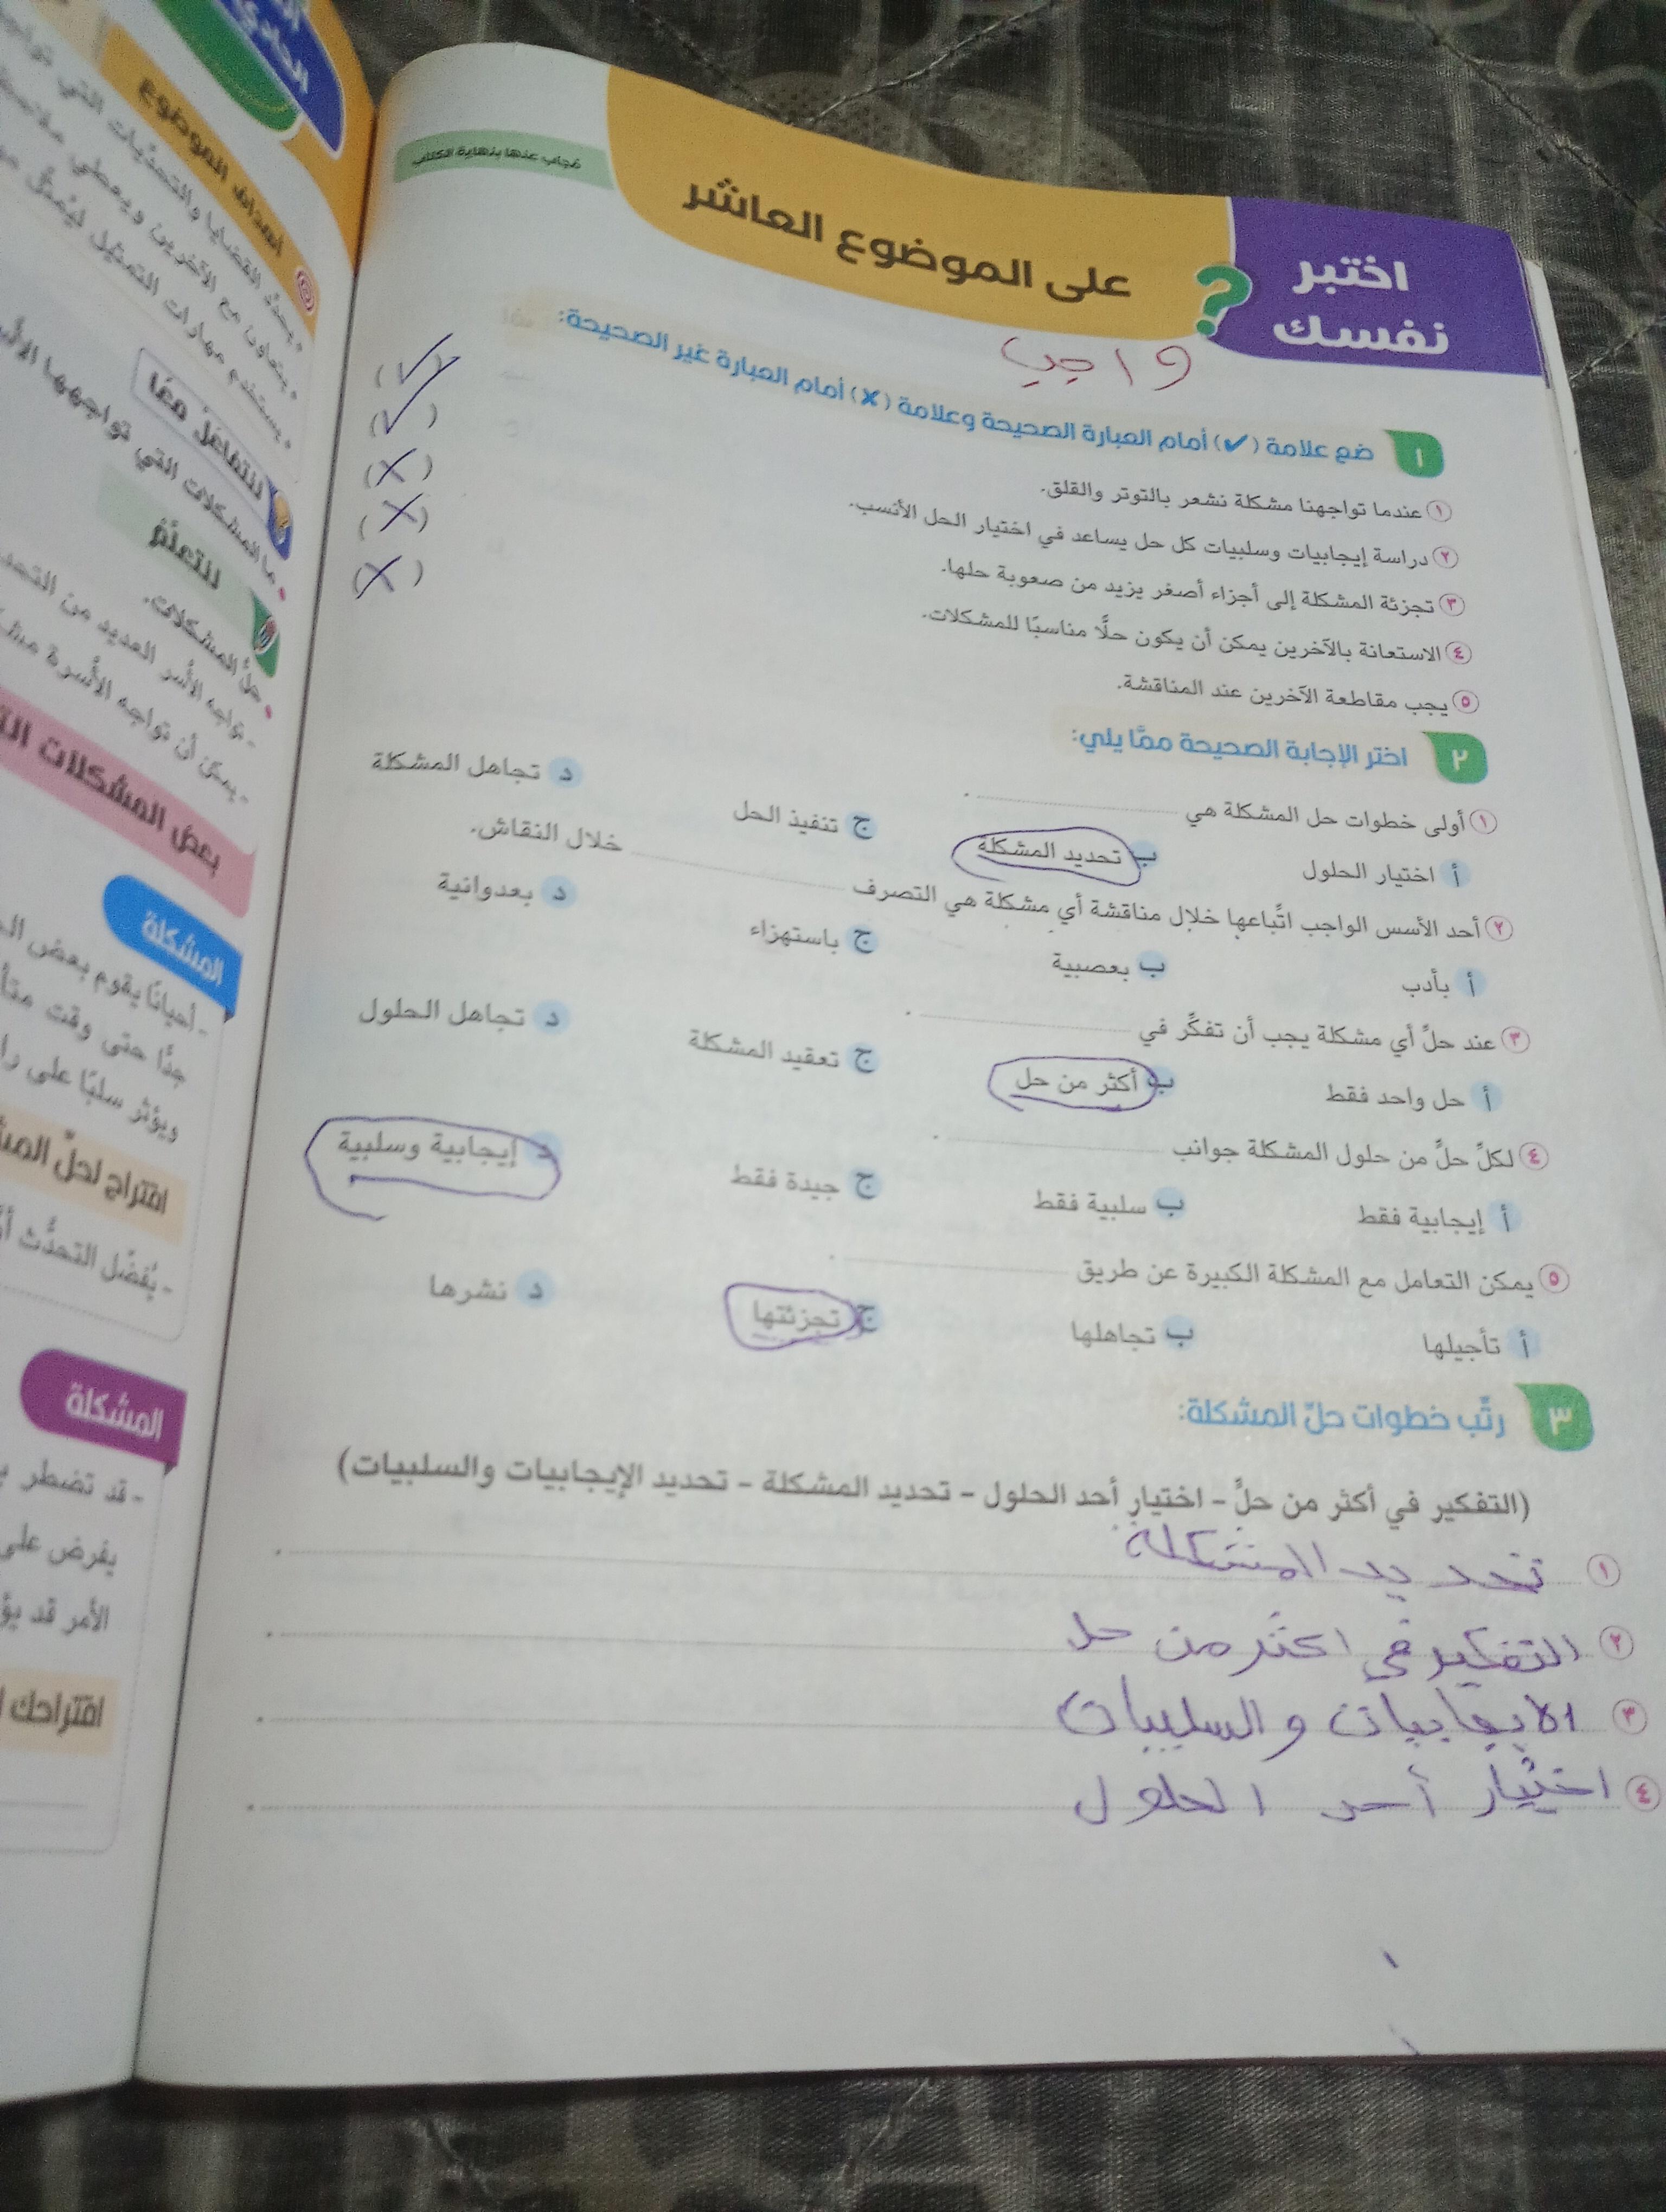 اختبر
نفسك
?
على الموضوع العاشر
مُجاب عنها بنهاية الكتاب
واجب
١ ضع علامة (✔) أمام العبارة الصحيحة وعلامة (✘) أمام العبارة غير الصحيحة:
١ عندما تواجهنا مشكلة نشعر بالتوتر والقلق. (✓)
٢ دراسة إيجابيات وسلبيات كل حل يساعد في اختيار الحل الأنسب. (✓)
٣ تجزئة المشكلة إلى أجزاء أصغر يزيد من صعوبة حلها. (X)
٤ الاستعانة بالآخرين يمكن أن يكون حلًّا مناسبًا للمشكلات. (X)
٥ يجب مقاطعة الآخرين عند المناقشة. (X)
٢ اختر الإجابة الصحيحة ممَّا يلي:
١ أولى خطوات حل المشكلة هي .
أ اختيار الحلول ب تحديد المشكلة ج تنفيذ الحل د تجاهل المشكلة
٢ أحد الأسس الواجب اتِّباعها خلال مناقشة أي مشكلة هي التصرف خلال النقاش.
أ بأدب ب بعصبية ج باستهزاء د بعدوانية
٣ عند حلِّ أي مشكلة يجب أن تفكِّر في .
أ حل واحد فقط ب أكثر من حل ج تعقيد المشكلة د تجاهل الحلول
٤ لكلِّ حلٍّ من حلول المشكلة جوانب .
أ إيجابية فقط ب سلبية فقط ج جيدة فقط د إيجابية وسلبية
٥ يمكن التعامل مع المشكلة الكبيرة عن طريق .
أ تأجيلها ب تجاهلها ج تجزئتها د نشرها
٣ رتِّب خطوات حلِّ المشكلة:
(التفكير في أكثر من حلٍّ – اختيار أحد الحلول – تحديد المشكلة – تحديد الإيجابيات والسلبيات)
١ تحديد المشكلة .
٢ التفكير في اكثر من حل .
٣ الايجابيات والسلبيات .
٤ اختيار أحد الحلول .
أهداف الموضوع
لنتفاعل معًا
لنتعلَّم
حلُّ المشكلات.
- تواجه الأُسر العديد من
- يمكن أن تواجه الأُسرة
بعض المشكلات
المشكلة
- أحيانًا يقوم بعض
جدًّا حتى وقت
ويؤثر سلبًا على
اقتراح لحلِّ
- يُفضَّل التحدُّث
المشكلة
- قد تضطر
يفرض على
الأمر قد
اقتراحك